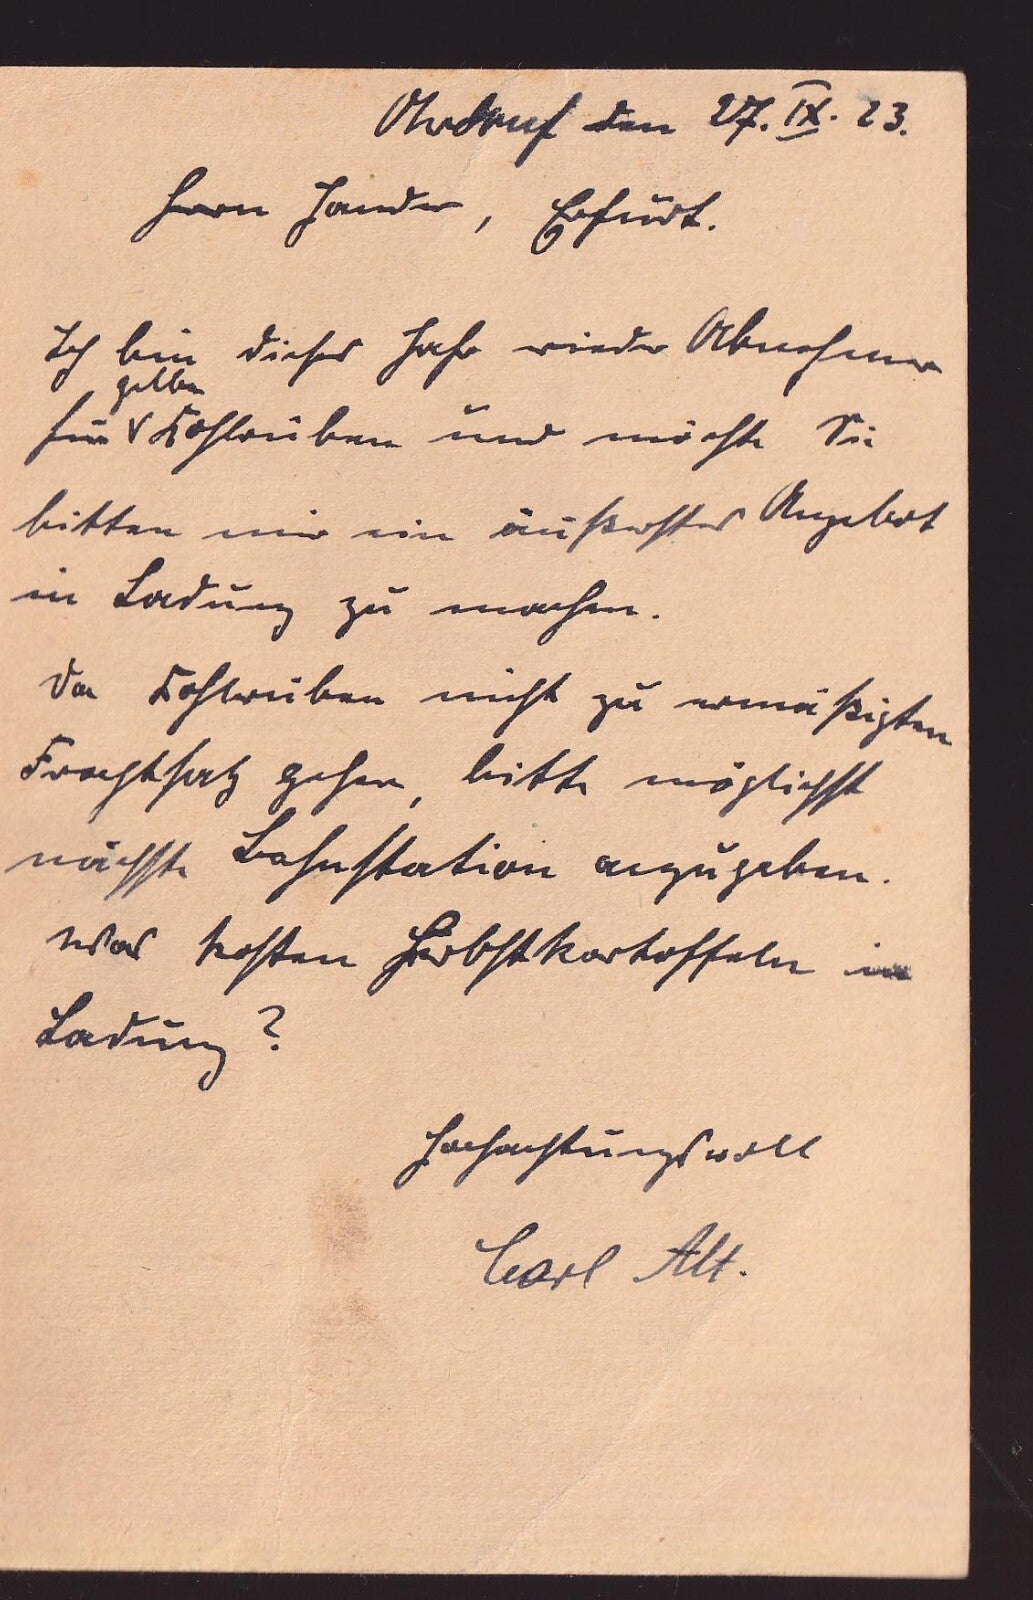 Ohrdruf den 27. IX. 23.
Herrn Jander, Erfurt.
Ich bin dieses Jahr wieder Abnehmer
gelbe
für V Kohlrüben und möchte Sie
bitten mir ein äußerstes Angebot
in Ladung zu machen.
Da Kohlrüben nicht zu ermäßigten
Frachtsatz gehen, bitte möglichst
nächste Bahnstation anzugeben.
Was kosten Herbstkartoffeln in
Ladung?
Hochachtungsvoll
Carl Alt.